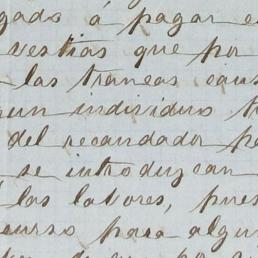 gado á pagar e
vestias que por
las trancas caus
gun individuo t
del recaudador pe
se introduzcan
las labores, pues
curso para algu